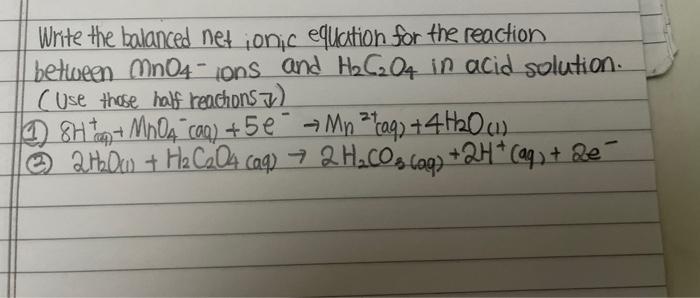 Write the balanced net ionic equation for the reaction
between MnO4- ions and H2C2O4 in acid solution.
(Use those half reactions ↓)
① 8H+(aq) + MnO4-(aq) + 5e- → Mn2+(aq) + 4H2O(l)
② 2H2O(l) + H2C2O4(aq) → 2H2CO3(aq) + 2H+(aq) + 2e-